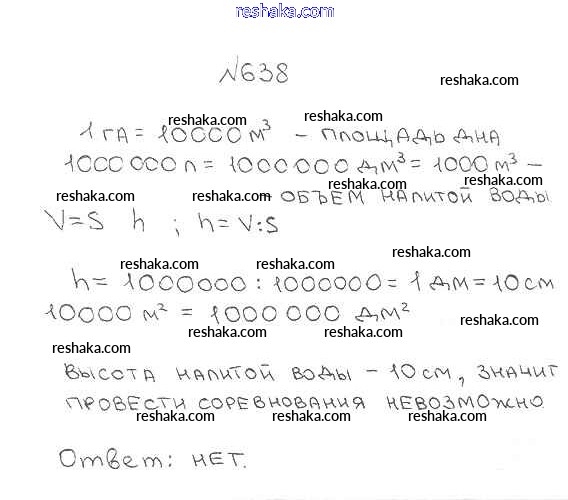 reshaka.com
№638
reshaka.com
reshaka.com reshaka.com
1 га = 10000 м³ - площадь дна
1000 000 л = 1000 000 дм³ = 1000 м³ -
reshaka.com reshaka.com reshaka.com reshaka.com
- объем налитой воды
V=S h ; h= V:S
reshaka.com
reshaka.com reshaka.com
h= 1000000 : 1000000 = 1 дм = 10 см
10000 м² = 1000 000 дм²
reshaka.com
reshaka.com reshaka.com
reshaka.com
высота налитой воды - 10 см, значит
провести соревнования невозможно
reshaka.com reshaka.com reshaka.com
Ответ: нет.